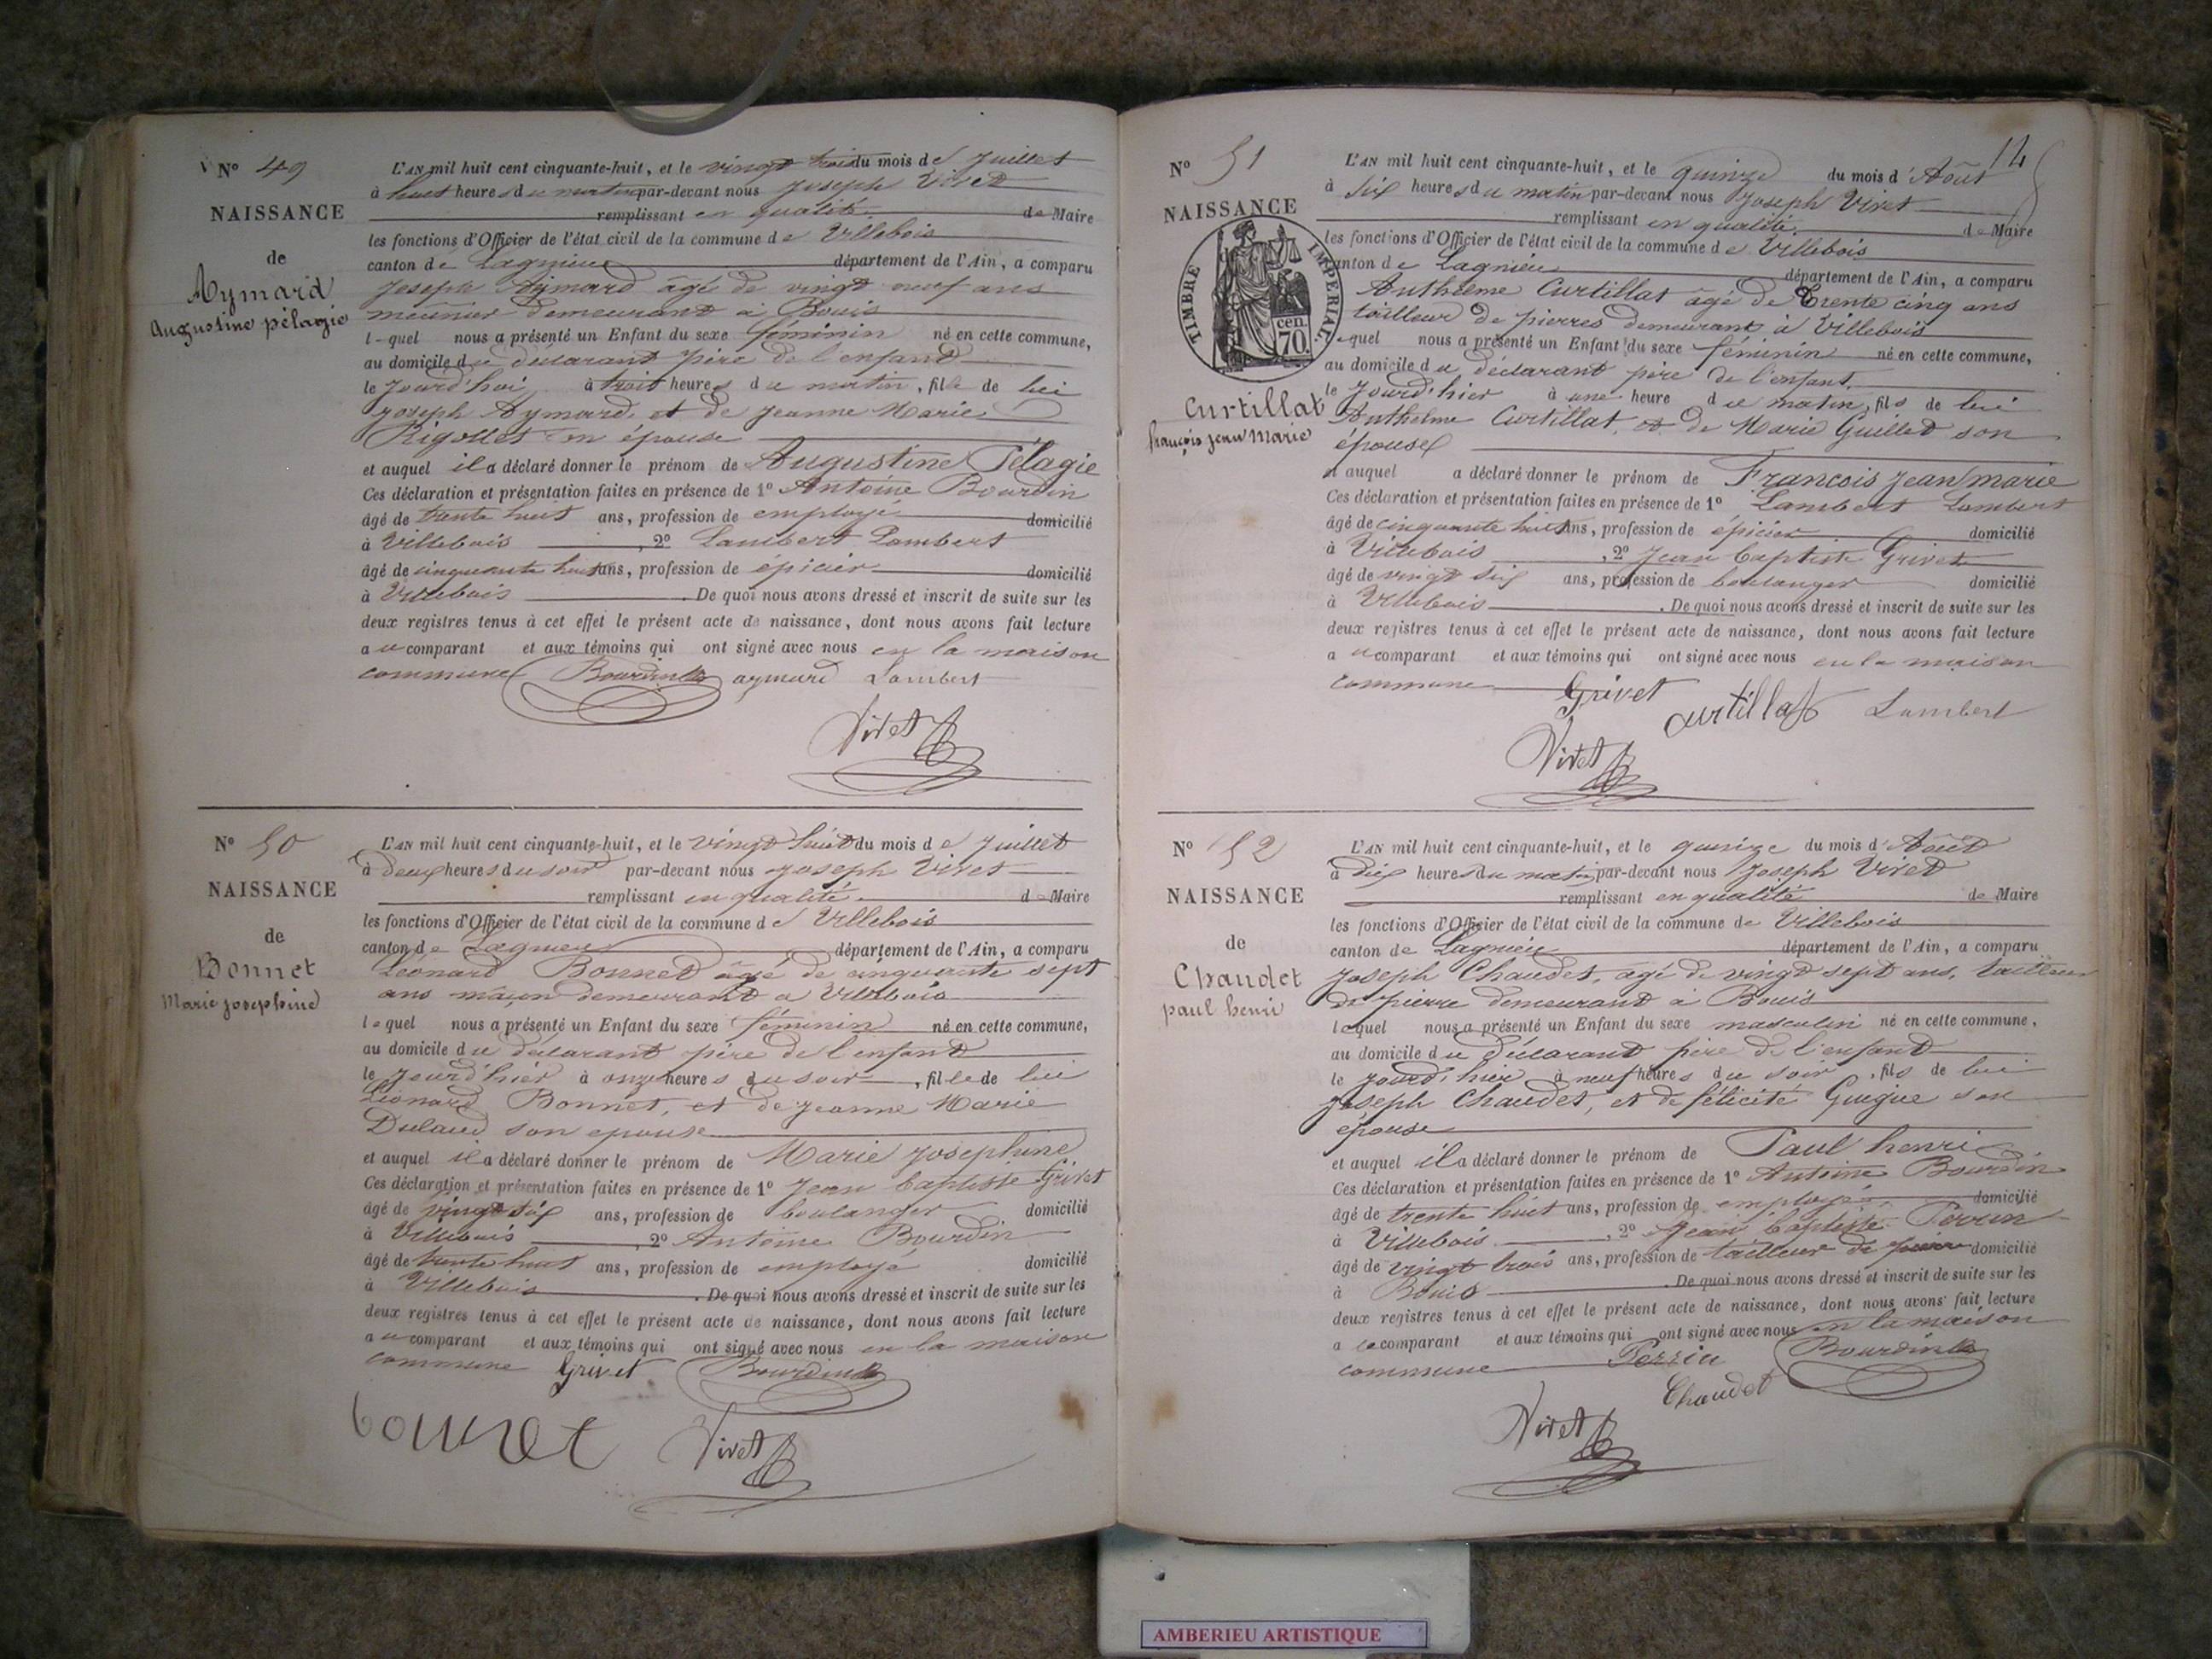 N° 49
NAISSANCE
de
Aymard
Augustine pélagie
L'AN mil huit cent cinquante-huit, et le vingt trois du mois de Juillet
à huit heures du matin par-devant nous Joseph Viret
remplissant en qualité de Maire
les fonctions d'Officier de l'état civil de la commune de Villebois
canton de Lagnieu département de l'Ain, a comparu
Joseph Aymard âgé de vingt neuf ans
meunier demeurant à Bouis
lequel nous a présenté un Enfant du sexe féminin né en cette commune,
au domicile du déclarant père de l'enfant
le jourd'hui à trois heures du matin, fille de lui
Joseph Aymard, et de Jeanne Marie
Rigollet son épouse
et auquel il a déclaré donner le prénom de Augustine Pélagie
Ces déclaration et présentation faites en présence de 1° Antoine Bourdin
âgé de trente huit ans, profession de employé domicilié
à Villebois, 2° Lambert Lambert
âgé de cinquante huit ans, profession de épicier domicilié
à Villebois. De quoi nous avons dressé et inscrit de suite sur les
deux registres tenus à cet effet le présent acte de naissance, dont nous avons fait lecture
au comparant et aux témoins qui ont signé avec nous en la maison
commune Bourdin aymard Lambert
Viret
N° 50
NAISSANCE
de
Bonnet
Marie josephine
L'AN mil huit cent cinquante-huit, et le vingt huit du mois de Juillet
à deux heures du soir par-devant nous Joseph Viret
remplissant en qualité de Maire
les fonctions d'Officier de l'état civil de la commune de Villebois
canton de Lagnieu département de l'Ain, a comparu
Léonard Bonnet âgé de cinquante sept
ans maçon demeurant a Villebois
lequel nous a présenté un Enfant du sexe féminin né en cette commune,
au domicile du déclarant père de l'enfant
le jourd'hier à onze heures du soir, fille de lui
Léonard Bonnet, et de Jeanne Marie
son epouse
et auquel il a déclaré donner le prénom de Marie Josephine
Ces déclaration et présentation faites en présence de 1° Jean baptiste Grivet
âgé de vingt six ans, profession de boulanger domicilié
à Villebois, 2° Antoine Bourdin
âgé de trente huit ans, profession de employé domicilié
à Villebois. De quoi nous avons dressé et inscrit de suite sur les
deux registres tenus à cet effet le présent acte de naissance, dont nous avons fait lecture
au comparant et aux témoins qui ont signé avec nous en la maison
commune Grivet Bourdin
bonnet Viret
14
N° 51
NAISSANCE
TIMBRE IMPERIAL
70 cen.
Curtillat
françois jean Marie
L'AN mil huit cent cinquante-huit, et le quinze du mois d'Août
à six heures du matin par-devant nous Joseph Viret
remplissant en qualité de Maire
les fonctions d'Officier de l'état civil de la commune de Villebois
canton de Lagnieu département de l'Ain, a comparu
Anthelme Curtillat âgé de trente cinq ans
tailleur de pierres demeurant à Villebois
lequel nous a présenté un Enfant du sexe féminin né en cette commune,
au domicile du déclarant père de l'enfant
le jourd'hier à une heure du matin, fils de lui
Anthelme Curtillat, et de Marie Guillet son
épouse
et auquel a déclaré donner le prénom de François Jean marie
Ces déclaration et présentation faites en présence de 1° Lambert Lambert
âgé de cinquante huit ans, profession de épicier domicilié
à Villebois, 2° Jean baptiste Grivet
âgé de vingt six ans, profession de boulanger domicilié
à Villebois. De quoi nous avons dressé et inscrit de suite sur les
deux registres tenus à cet effet le présent acte de naissance, dont nous avons fait lecture
au comparant et aux témoins qui ont signé avec nous en la maison
commune Grivet curtillat Lambert
Viret
N° 52
NAISSANCE
de
Chaudet
paul henri
L'AN mil huit cent cinquante-huit, et le quinze du mois d'Août
à dix heures du matin par-devant nous Joseph Viret
remplissant en qualité de Maire
les fonctions d'Officier de l'état civil de la commune de Villebois
canton de Lagnieu département de l'Ain, a comparu
Joseph Chaudet, âgé de vingt sept ans, tailleur
de pierre demeurant à Bouis
lequel nous a présenté un Enfant du sexe masculin né en cette commune,
au domicile du déclarant père de l'enfant
le jourd'hier à neuf heures du soir, fils de lui
Joseph Chaudet, et de félicité Guigue son
épouse
et auquel il a déclaré donner le prénom de Paul henri
Ces déclaration et présentation faites en présence de 1° Antoine Bourdin
âgé de trente huit ans, profession de employé domicilié
à Villebois, 2° Jean baptiste Perrin
âgé de vingt trois ans, profession de tailleur de pierre domicilié
à Bouis. De quoi nous avons dressé et inscrit de suite sur les
deux registres tenus à cet effet le présent acte de naissance, dont nous avons fait lecture
au comparant et aux témoins qui ont signé avec nous en la maison
commune Perrin Bourdin
Chaudet
Viret
AMBERIEU ARTISTIQUE